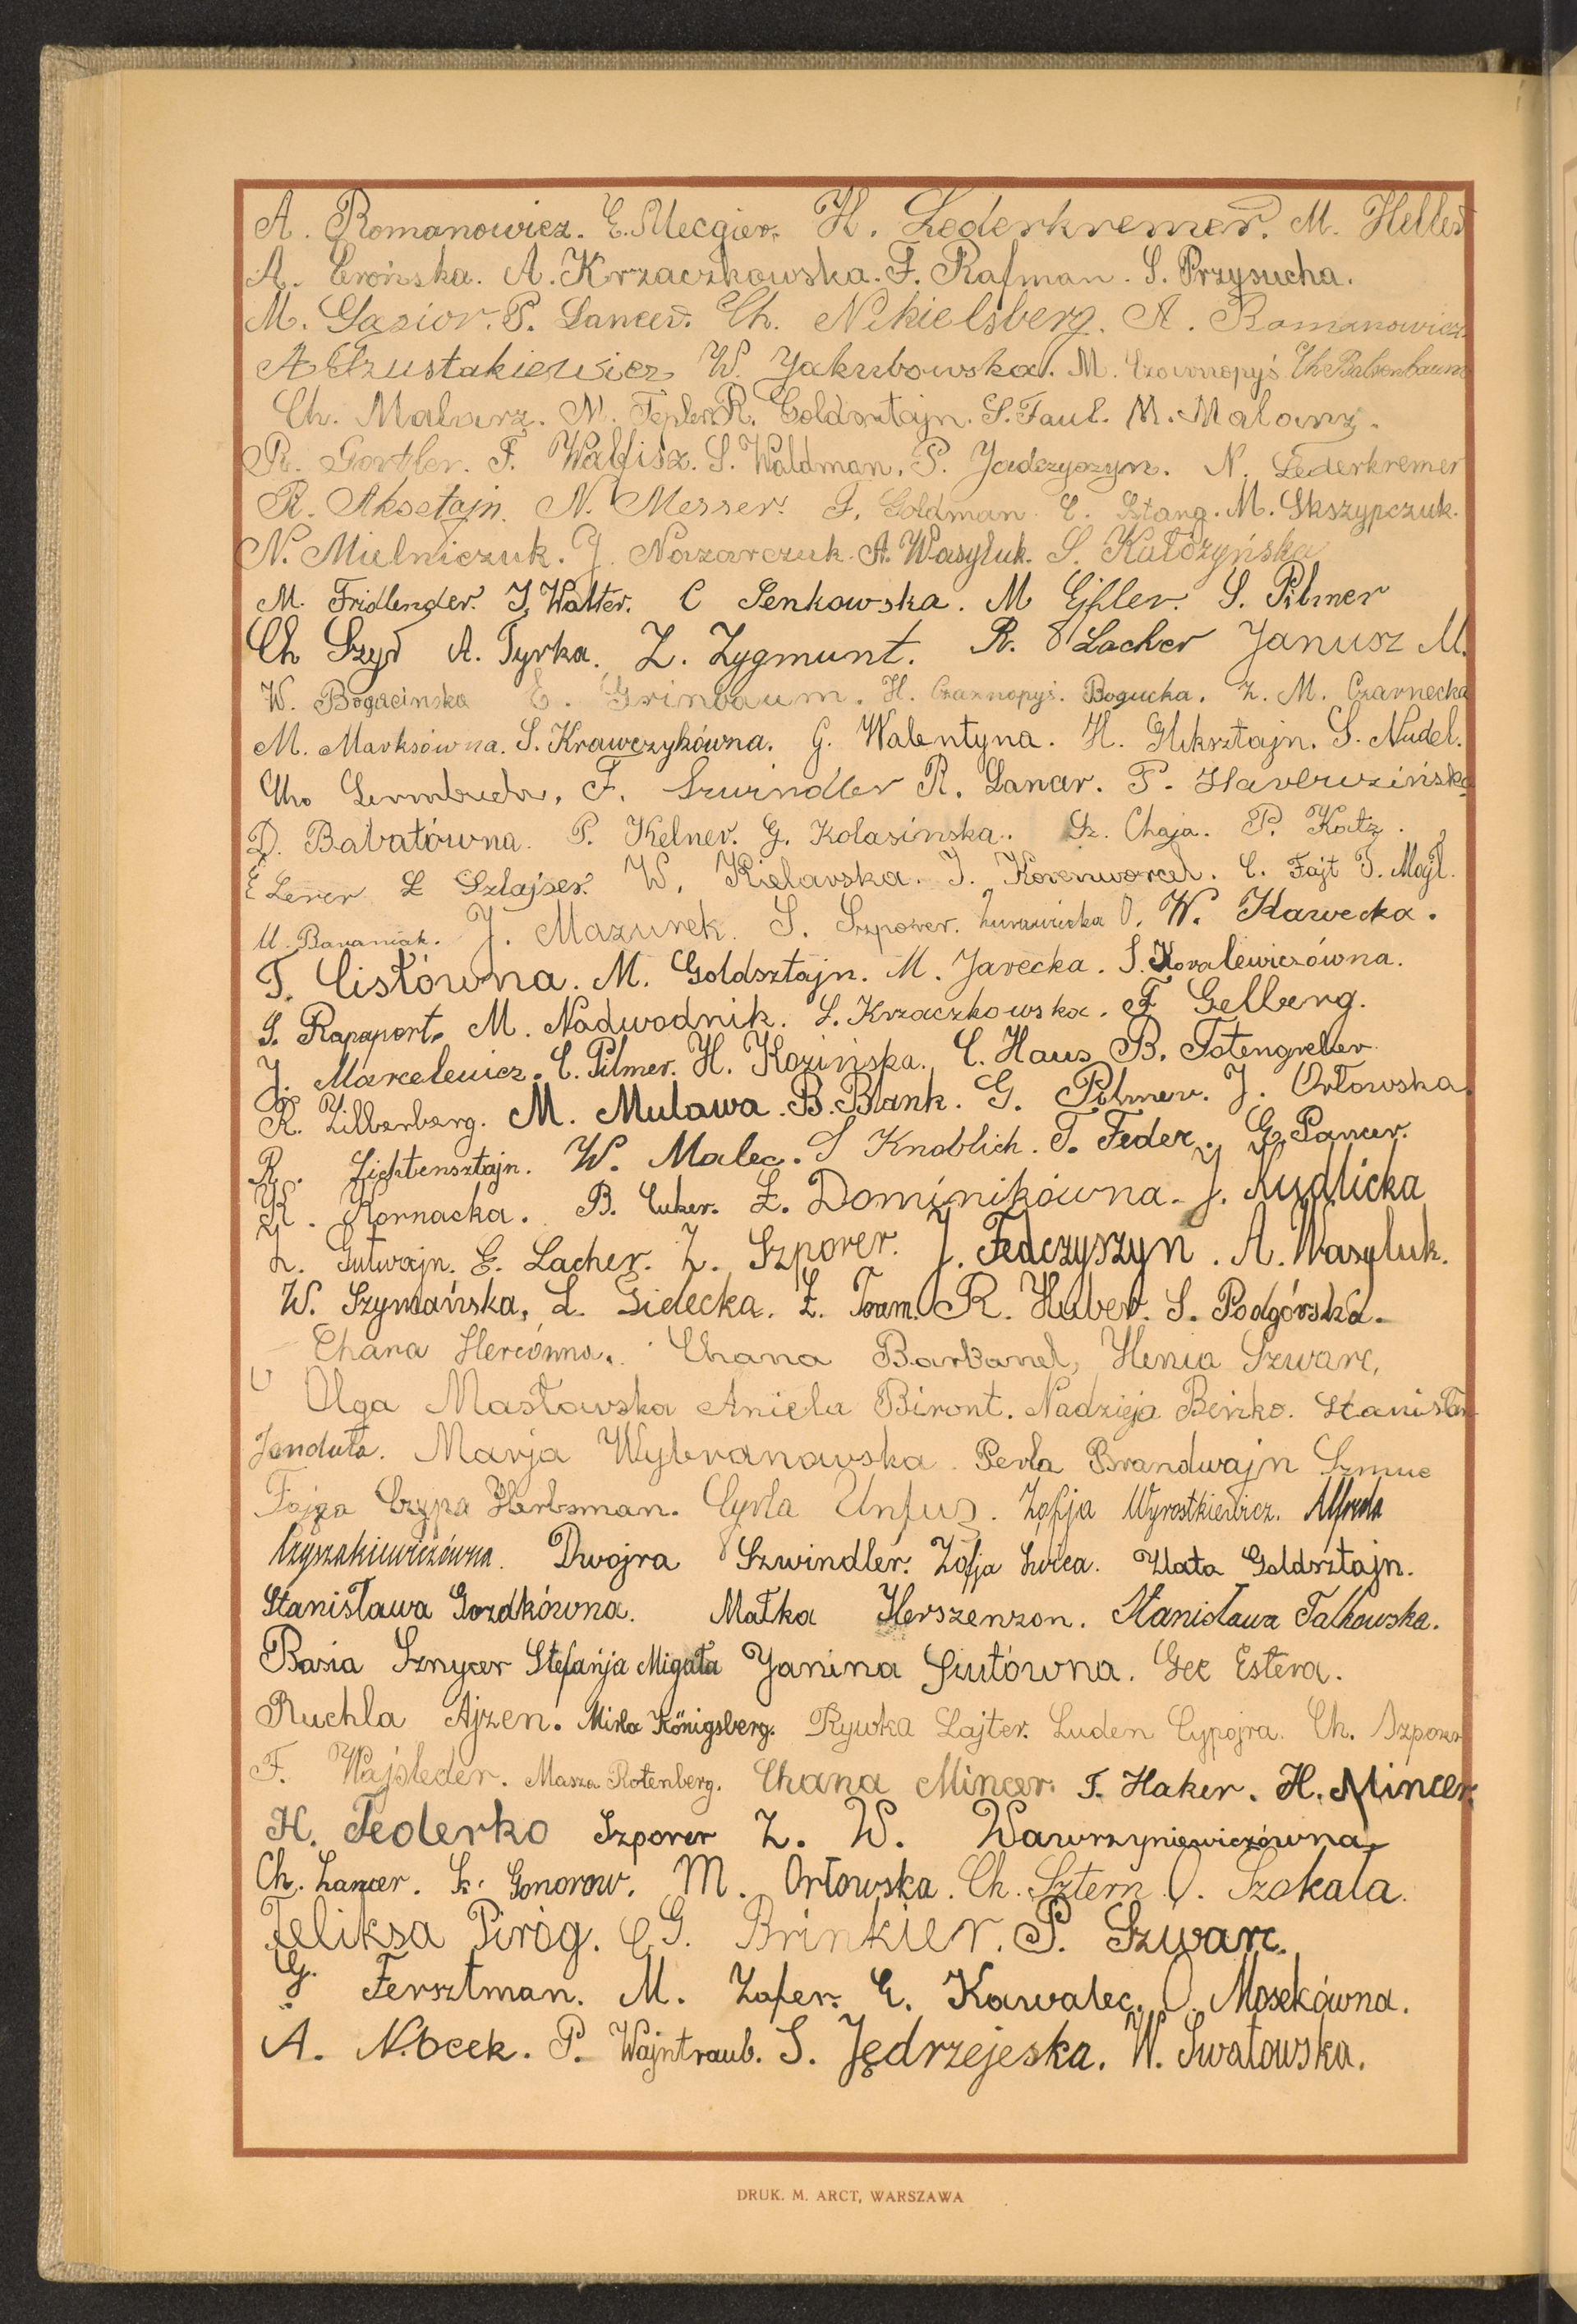 A. Romanowicz. E. Mecgier. H. Lederkremer. M. Heller
A. Crońska. A. Krzaczkowska. F. Rafman. S. Przysucha.
M. Gąsior. P. Lancer. Ch. Nikielsberg. A. Romanowicz
W. Jakubowska. M. Czarnopyś Ch Balsenbaum
Ch. Malarz. N. Tepler R. Goldsztajn. S. Faul. M. Malarz.
R. Gortler. F. Walfisz. S. Waldman. P. Jadczyszyn. N. Lederkremer
R. Aksetajn. N. Messer. F. Goldman. C. Sztang. M. Skszypczuk.
N. Mielniczuk. J. Nazarczuk. A. Wasyluk. S. Kałożyńska
M. Fridlender. J. Walter. C Senkowska. M Eifler. S. Pilmer
Ch Szyd A. Tyrka. Z. Zygmunt. R. Lacher Janusz M.
W. Bogacinska E. Grinbaum. H. Czarnopyś. Bogucka. Z. M. Czarnecka
M. Marksówna. S. Krawczykówna. G. Walentyna. H. Gliksztajn. S. Nudel.
Ch. F. Szwindler R. Lancer.
D. Babatówna. P. Kelner. G. Kolasinska. Sz. Chaja. P. Katz.
E Lerer L Szlajser. W. Kielarska. J. Korenworcel. C. Fajt T. Majl.
M. Baraniak. J. Mazurek. S. Szporer. Żurawicka O. W. Kawecka.
T. Cisłówna. M. Goldsztajn. M. Jarecka. S. Kowalewiczówna.
S. Rapaport. M. Nadwodnik. S. Krzaczkowska. F Gelberg.
J. Marcelewicz. C. Pilmer. H. Kozińska. C. Haus B. Totengreber
R. Zilberberg. M. Mulawa. B. Blank. G. Pilmer. J. Orłowska.
R. Lichtensztajn. W. Malec. S Knoblich. T. Feder. G. Pancer.
K. Kornacka. B. Cuker. Z. Dominikówna. J. Kudlicka
L. Gutwajn. E. Lacher. Z. Szporer. J. Fedczyszyn. A. Wasyluk.
W. Szymańska. L. Gidecka. Z. Tram. R. Huber. S. Podgórska.
Chana Hercówna. Chana Barbanel, Henia Szwarc,
Olga Masłowska Aniela Biront. Nadzieja Beńko. Stanisław
Janduła. Marja Wybranowska. Perla Brandwajn Szmuc
Fajga Czypa Herbsman. Cyrla Unfus. Zofja Wyrostkiewicz. Alfreda
Czyszakiewiczówna. Dwojra Szwindler. Zofja Świca. Złata Goldsztajn.
Stanisława Gozdkówna. Małka Herszenzon. Stanisława Talkowska.
Basia Sznycer Stefanja Migała Janina Siutówna. Gec Estera.
Ruchla Ajzen. Mirla Königsberg. Rywka Lajter. Luden Cypojra. Ch. Szporer
F. Wajsleder. Masza Rotenberg. Chana Mincer. T. Haker. H. Mincer.
H. Federko Szporer Z. W. Wawrzyniewiczówna
Ch. Lancer. Sz. Gonorow. M. Orłowska. Ch. Sztern O. Szokała.
Feliksa Piróg. C. G. Brinkier. P. Szwarc.
G. Fersztman. M. Zafer. E. Kowalec. O. Mosekówna.
A. Nocek. P. Wajntraub. S. Jędrzejeska. W. Swatowska.
DRUK. M. ARCT, WARSZAWA